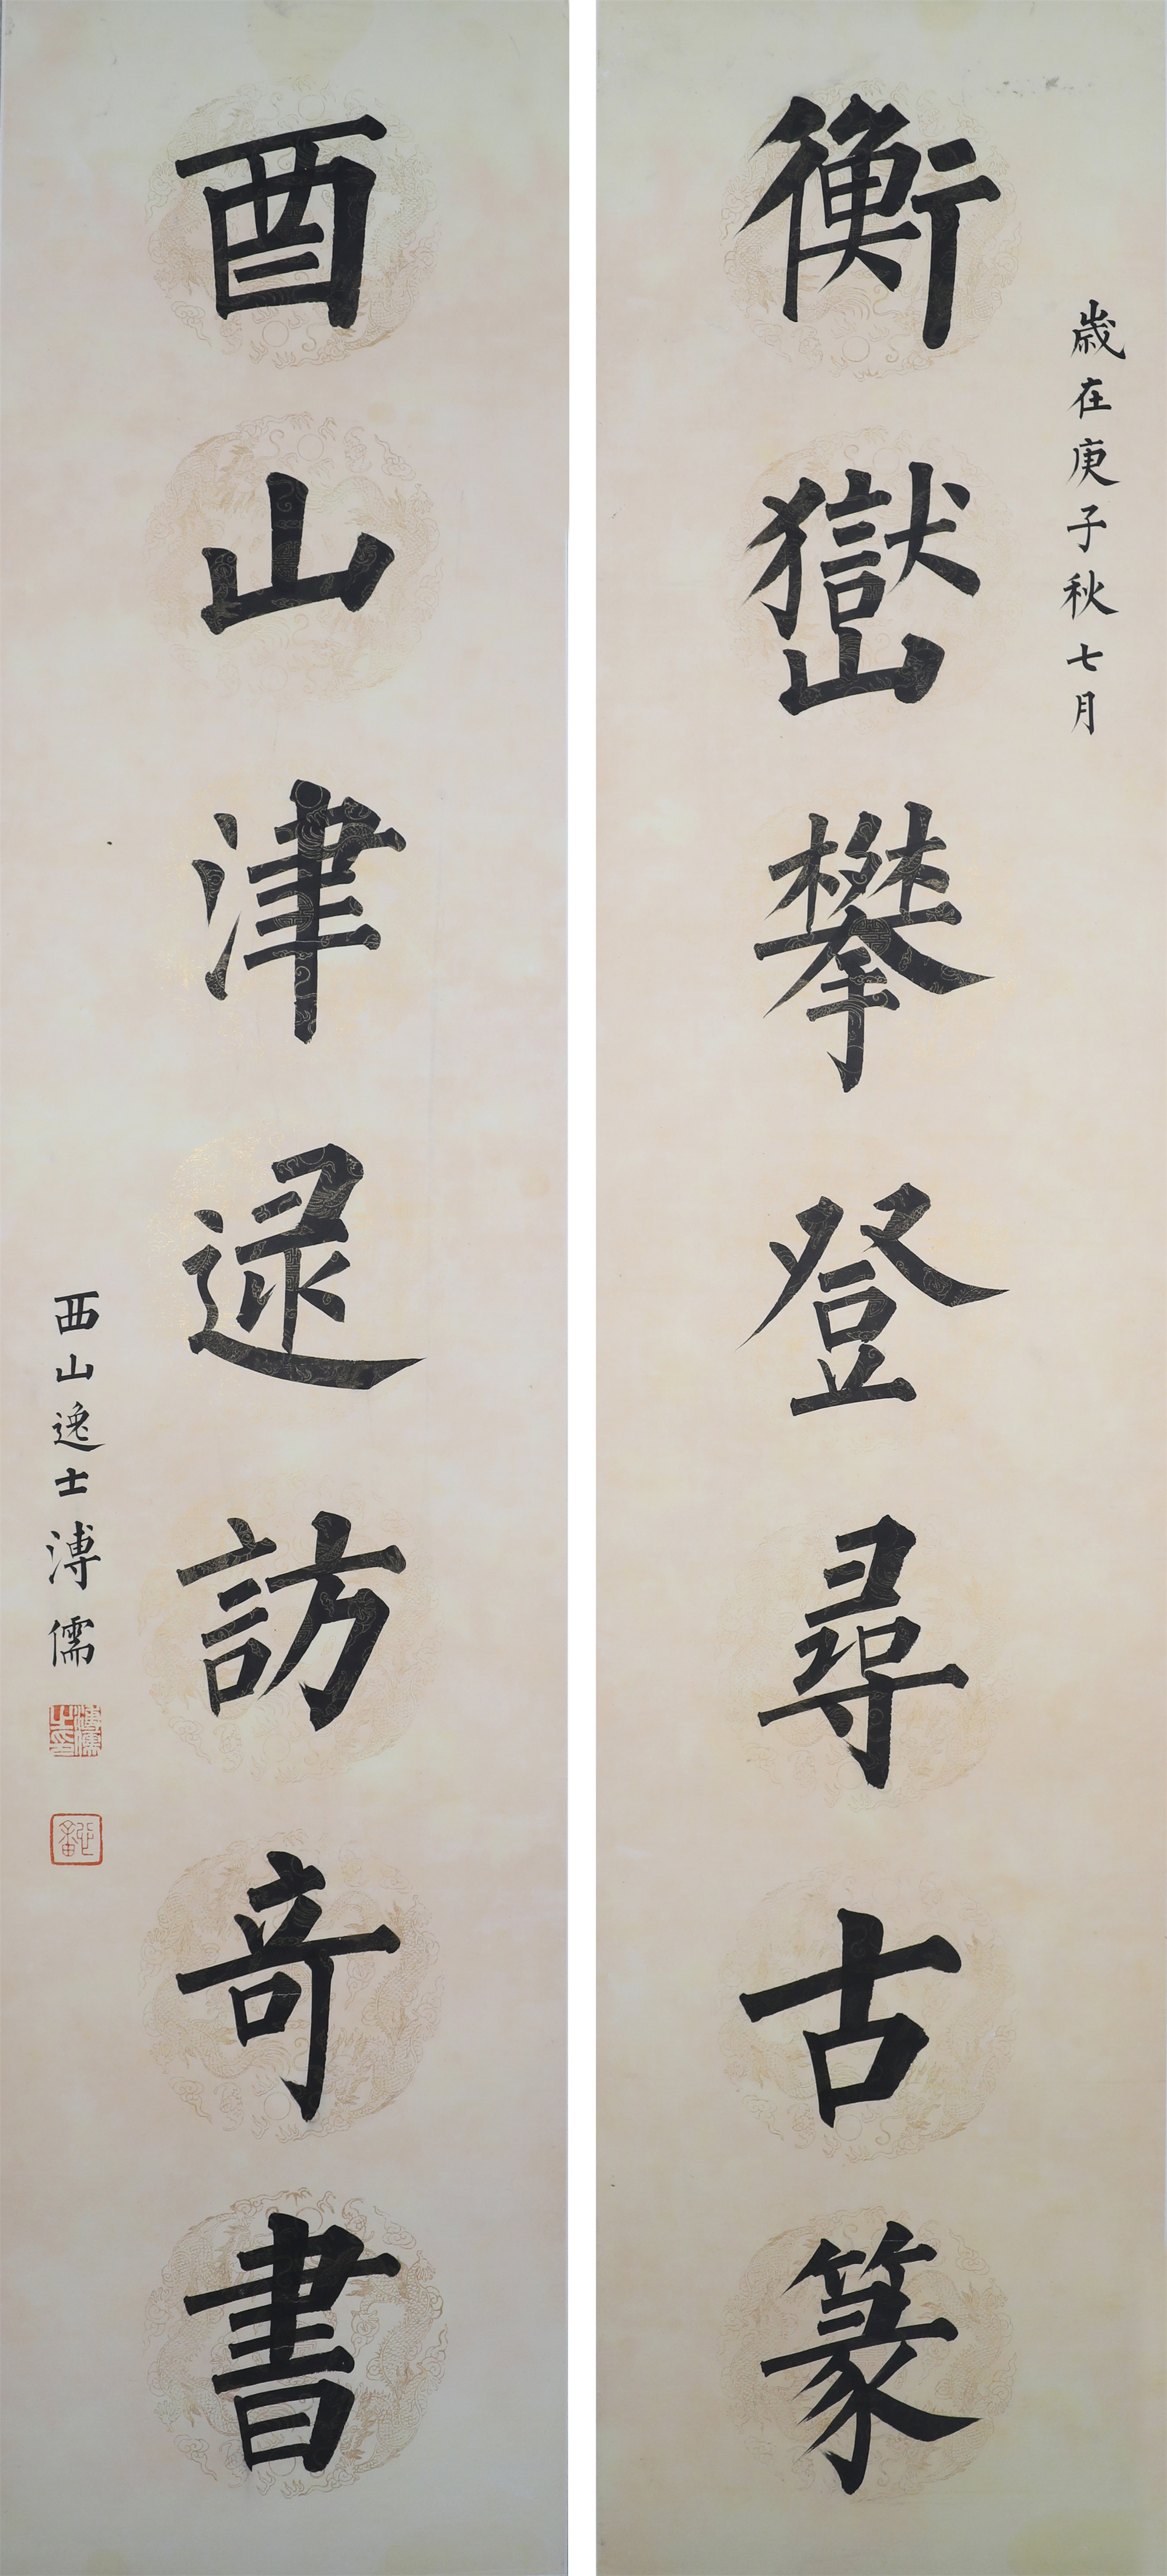 歲在庚子秋七月
衡嶽攀登尋古篆
酉山津逮訪竒書
西山逸士溥儒
溥儒之印